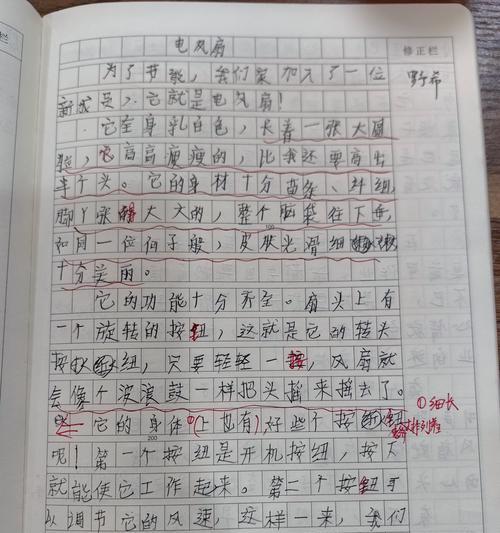 电风扇
修正栏
为了节能，我们家加入了一位
野希
新成员，它就是电风扇！
它全身乳白色，长着一张大圆
脸，它高高瘦瘦的，比我还要高出
半个头。它的身材十分苗条、纤细，
脚丫张的大大的，整个脑袋往下垂，
如同一位弟子般，皮肤光滑细嫩
十分美丽。
100
它的功能十分齐全。扇头上有
一个旋转的按钮，这就是它的转头
按钮，只要轻轻一按，风扇就
会像个波浪鼓一样把头摇来摇去了。
①细长
它的身体(上也有)好些个按钮
排列着
200
呢！第一个按钮是开机按钮，按下
就能使它工作起来。第二个按钮可
以调节它的风速，这样一来，我们